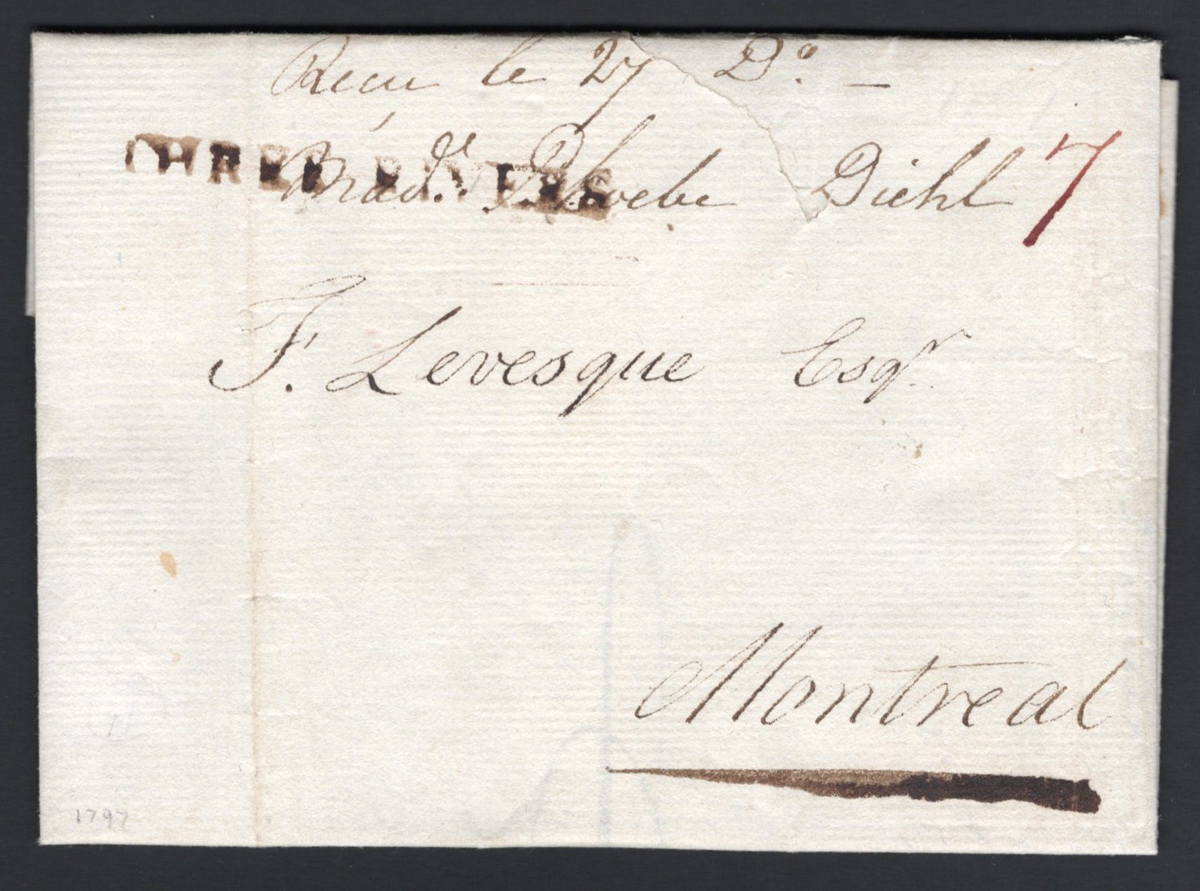 Recu le 27 Do. —
THREE RIVERS
Made. Phoebe Diehl 7
F. Levesque Esqr.
Montreal
1797